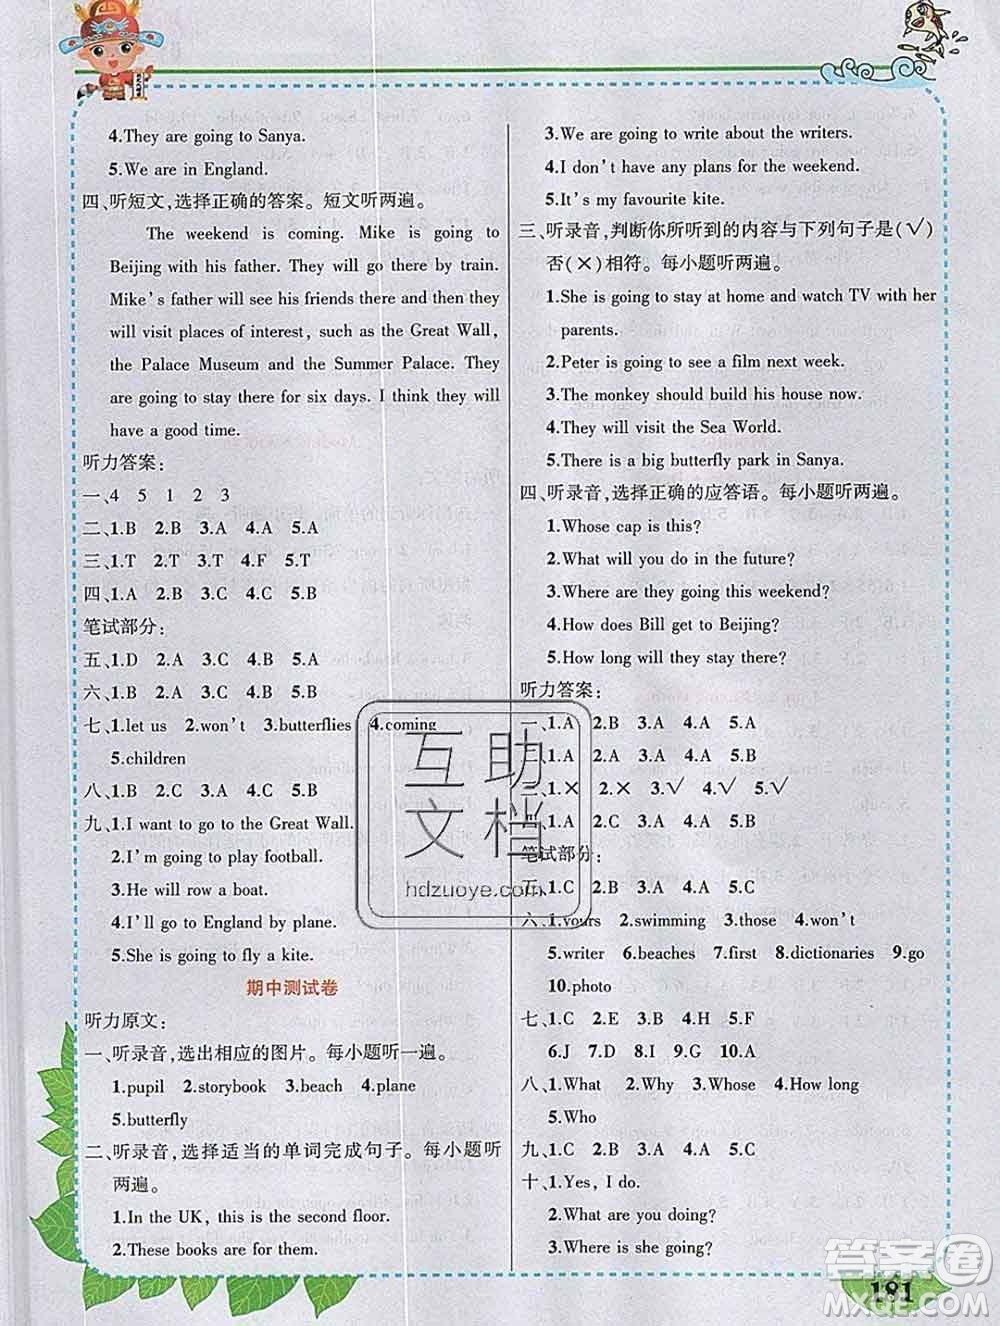 4.They are going to Sanya.
5.We are in England.
四、听短文,选择正确的答案。短文听两遍。
The weekend is coming. Mike is going to
Beijing with his father. They will go there by train.
Mike's father will see his friends there and then they
will visit places of interest, such as the Great Wall,
the Palace Museum and the Summer Palace. They
are going to stay there for six days. I think they will
have a good time.
听力答案:
一、4 5 1 2 3
二、1.B 2.B 3.A 4.A 5.A
三、1.T 2.T 3.T 4.F 5.T
四、1.A 2.B 3.C 4.C 5.B
笔试部分:
五、1.D 2.A 3.C 4.A 5.B
六、1.B 2.A 3.C 4.A 5.B
七、1.let us 2.won't 3.butterflies 4.coming
5.children
八、1.B 2.C 3.A 4.C 5.B
九、1.I want to go to the Great Wall.
2.I'm going to play football.
3.He will row a boat.
4.I'll go to England by plane.
5.She is going to fly a kite.
期中测试卷
听力原文:
一、听录音,选出相应的图片。每小题听一遍。
1.pupil 2.storybook 3.beach 4.plane
5.butterfly
二、听录音,选择适当的单词完成句子。每小题听
两遍。
1.In the UK, this is the second floor.
2.These books are for them.
3.We are going to write about the writers.
4.I don't have any plans for the weekend.
5.It's my favourite kite.
三、听录音,判断你所听到的内容与下列句子是(√)
否(×)相符。每小题听两遍。
1.She is going to stay at home and watch TV with her
parents.
2.Peter is going to see a film next week.
3.The monkey should build his house now.
4.They will visit the Sea World.
5.There is a big butterfly park in Sanya.
四、听录音,选择正确的应答语。每小题听两遍。
1.Whose cap is this?
2.What will you do in the future?
3.Where are they going this weekend?
4.How does Bill get to Beijing?
5.How long will they stay there?
听力答案:
一、1.A 2.B 3.A 4.A 5.A
二、1.A 2.B 3.A 4.A 5.B
三、1.× 2.× 3.√ 4.√ 5.√
四、1.A 2.C 3.A 4.A 5.B
笔试部分:
五、1.C 2.B 3.A 4.B 5.C
六、1.yours 2.swimming 3.those 4.won't
5.writer 6.beaches 7.first 8.dictionaries 9.go
10.photo
七、1.C 2.E 3.B 4.H 5.F
6.J 7.D 8.I 9.G 10.A
八、1.What 2.Why 3.Whose 4.How long
5.Who
九、1.C 2.B 3.A 4.A 5.C
十、1.Yes, I do.
2.What are you doing?
3.Where is she going?
181
互助
文档
hdzuoye.com
答案圈
MXQE.COM